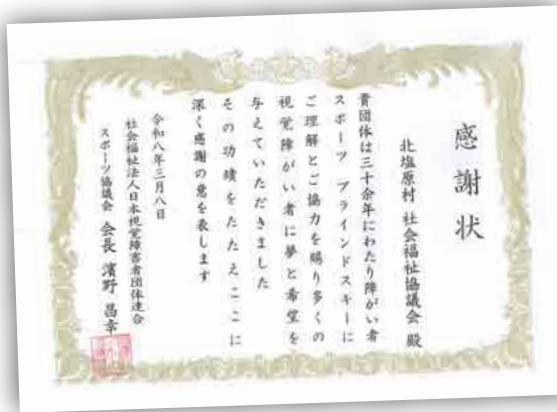 感謝状
北塩原村 社会福祉協議会 殿
貴団体は三十余年にわたり障がい者
スポーツ ブラインドスキーに
ご理解とご協力を賜り多くの
視覚障がい者に夢と希望を
与えていただきました
その功績をたたえここに
深く感謝の意を表します
令和八年三月八日
社会福祉法人日本視覚障害者団体連合
スポーツ協議会 会長 濱野 昌幸